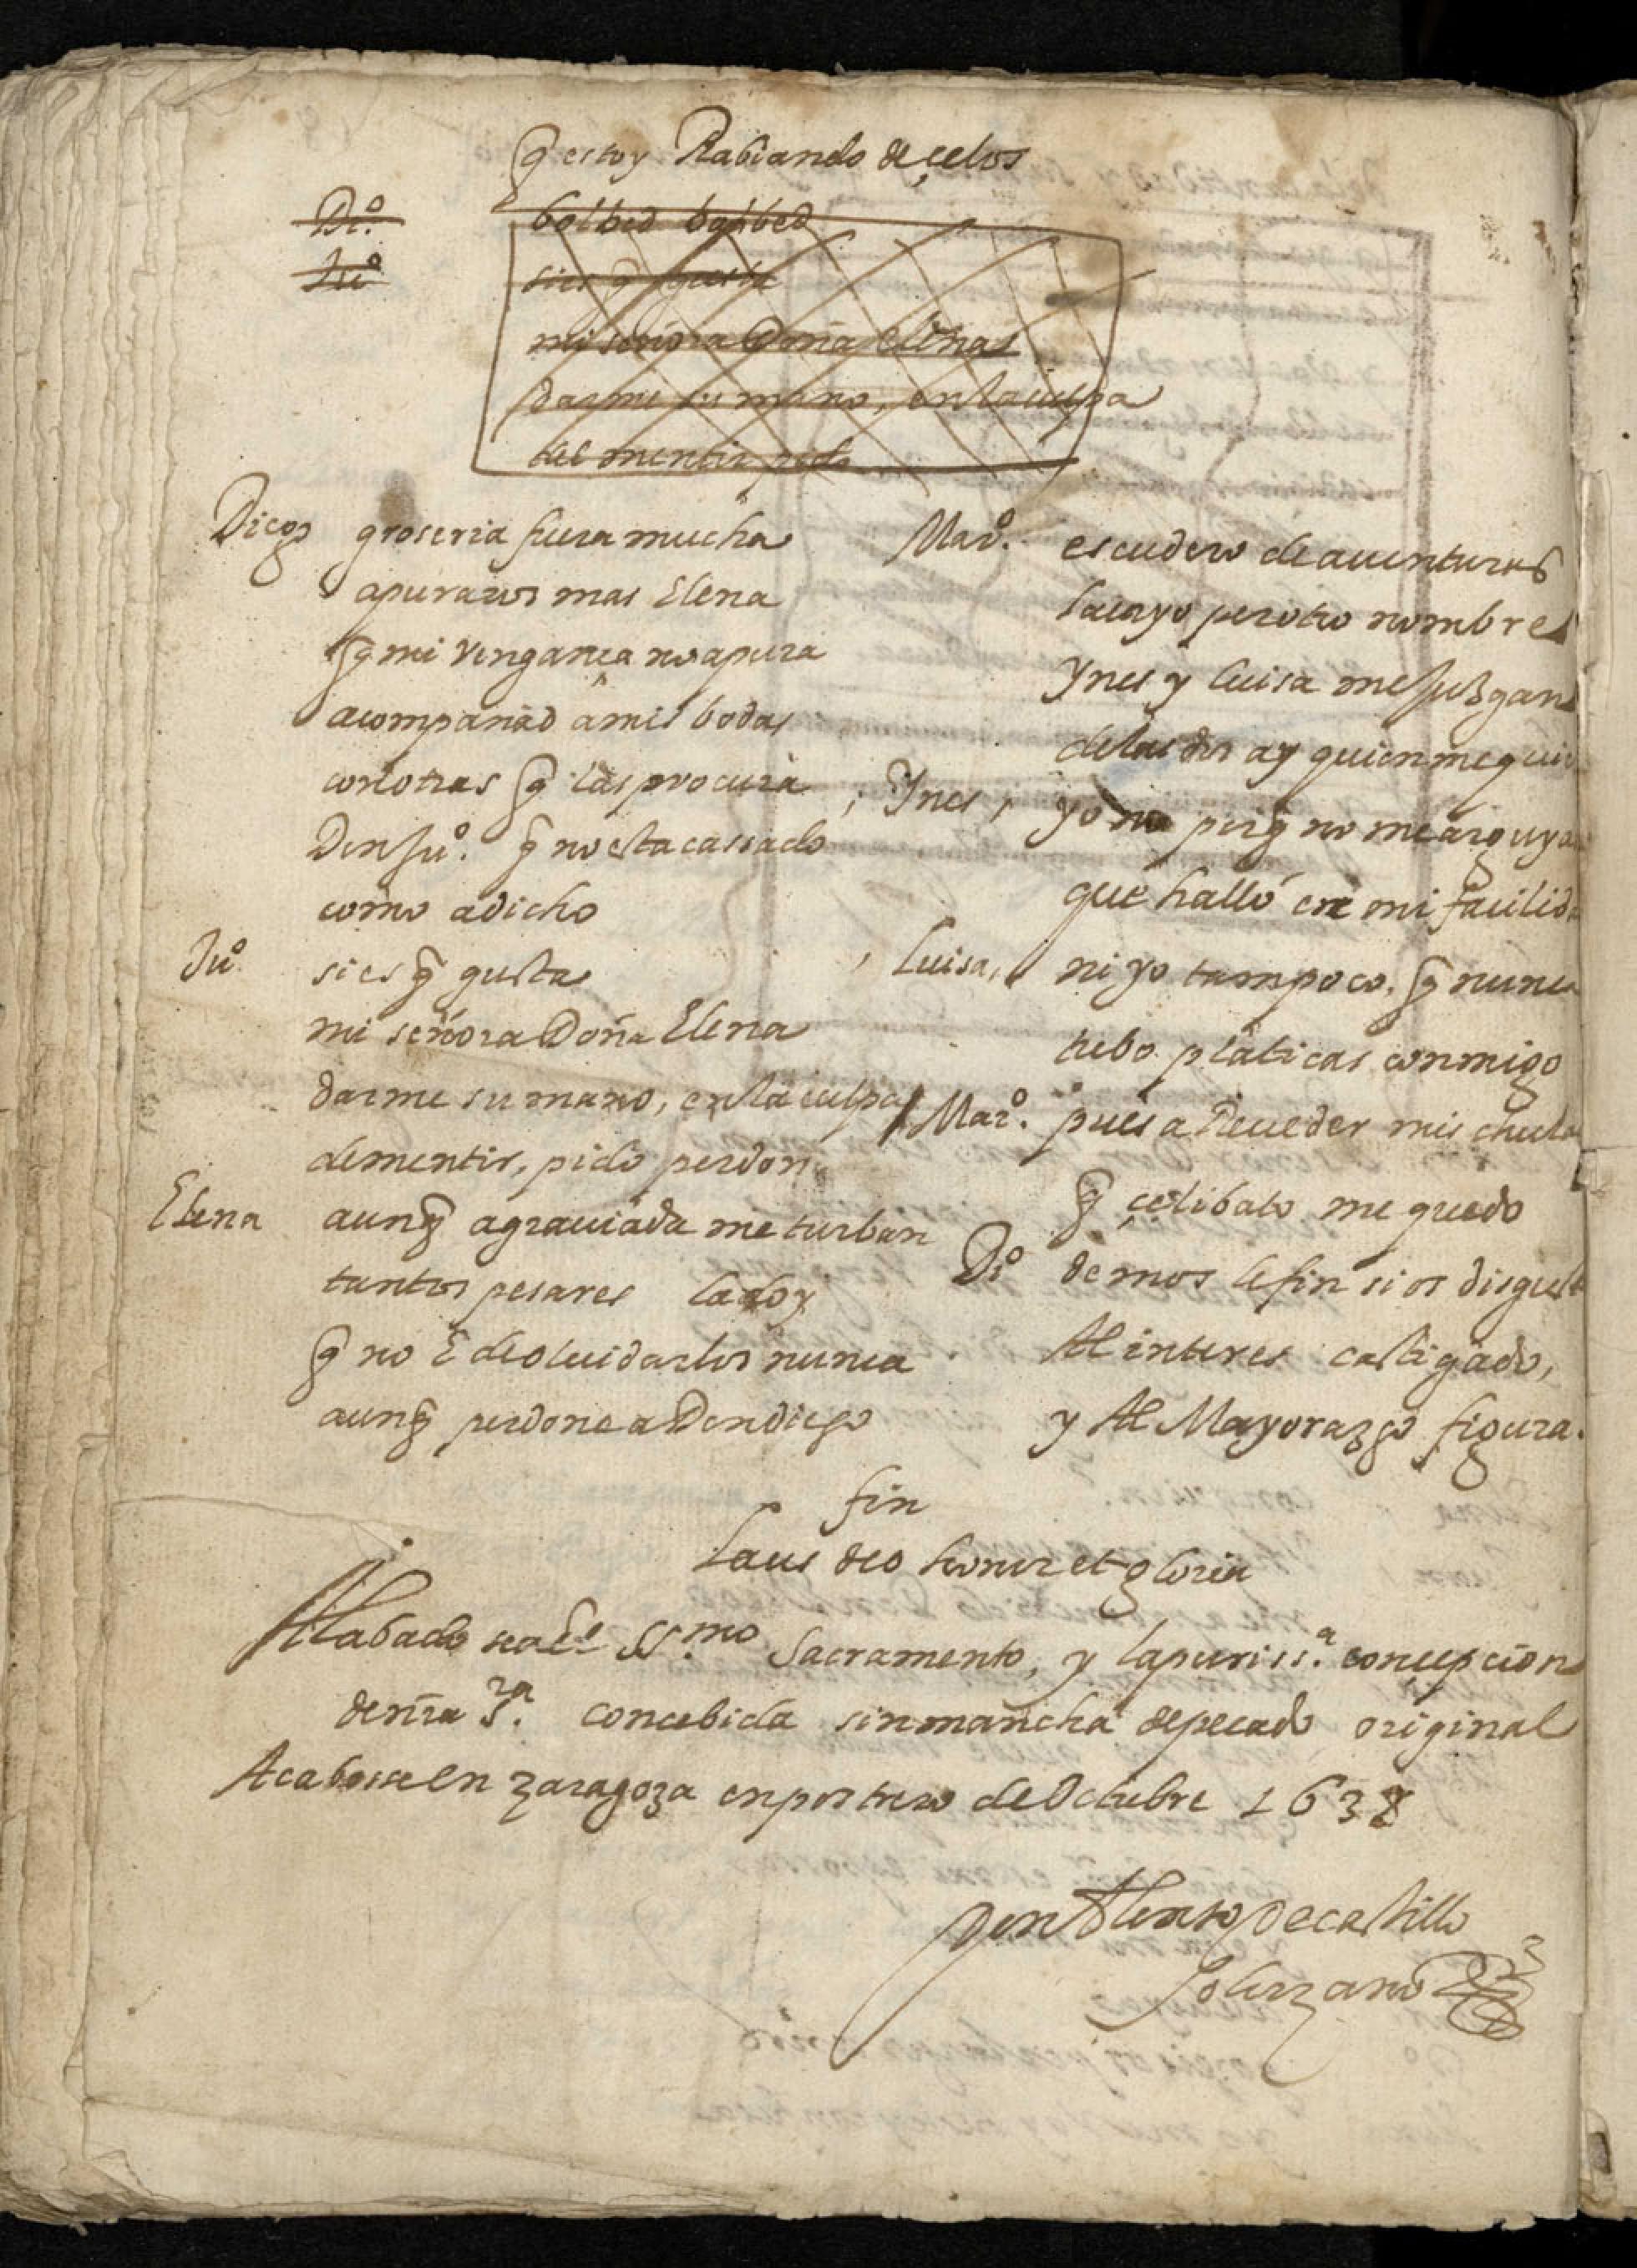 q̃ estoy Rabiando de çelos
Di.º bolbed bolbed
Juº si es q̃ gusta
mi señora Doña Elena
darme su mano, en la culpa
del mentir pido
Diego groseria fuera mucha
apuraros mas Elena
q̃ mi vengança no apura
acompañad a mis bodas
con otras q̃ las procura
Don Juº. q̃ no esta cassado
como a dicho
Juº si es q̃ gusta
mi señora Doña Elena
darme su mano, en la culpa
de mentir, pido perdon
Elena aunq̃ agrauiada me turban
tantos pesares la doy
q̃ no E de oluidarlos nunca
aunq̃ perdone a Don diego
Marº. escudero de auenturas
lacayo por otro nombre
Ynes y luisa me juzgan
de las dos ay quien me quie
Ynes, yo no porq̃ no me arguya
que halló en mi facilid
Luisa, ni yo tampoco, q̃ nunca
tubo platicas conmigo
Marº. pues a Reueder mis chulas
q̃ çelibato me quedo
Diº demos le fin si os disgusta
Al interes castigado,
y Al Mayorazgo figura.
fin
Laus deo honor et gloria
Alabado sea el SS.mo Sacramento, y la puriss.ª conçepcion
de nra Sª. concebida sin mancha de pecado original
Acabosse en Zaragoza en postrero de Octubre 1638
Don Alonso de castillo
Solorzano